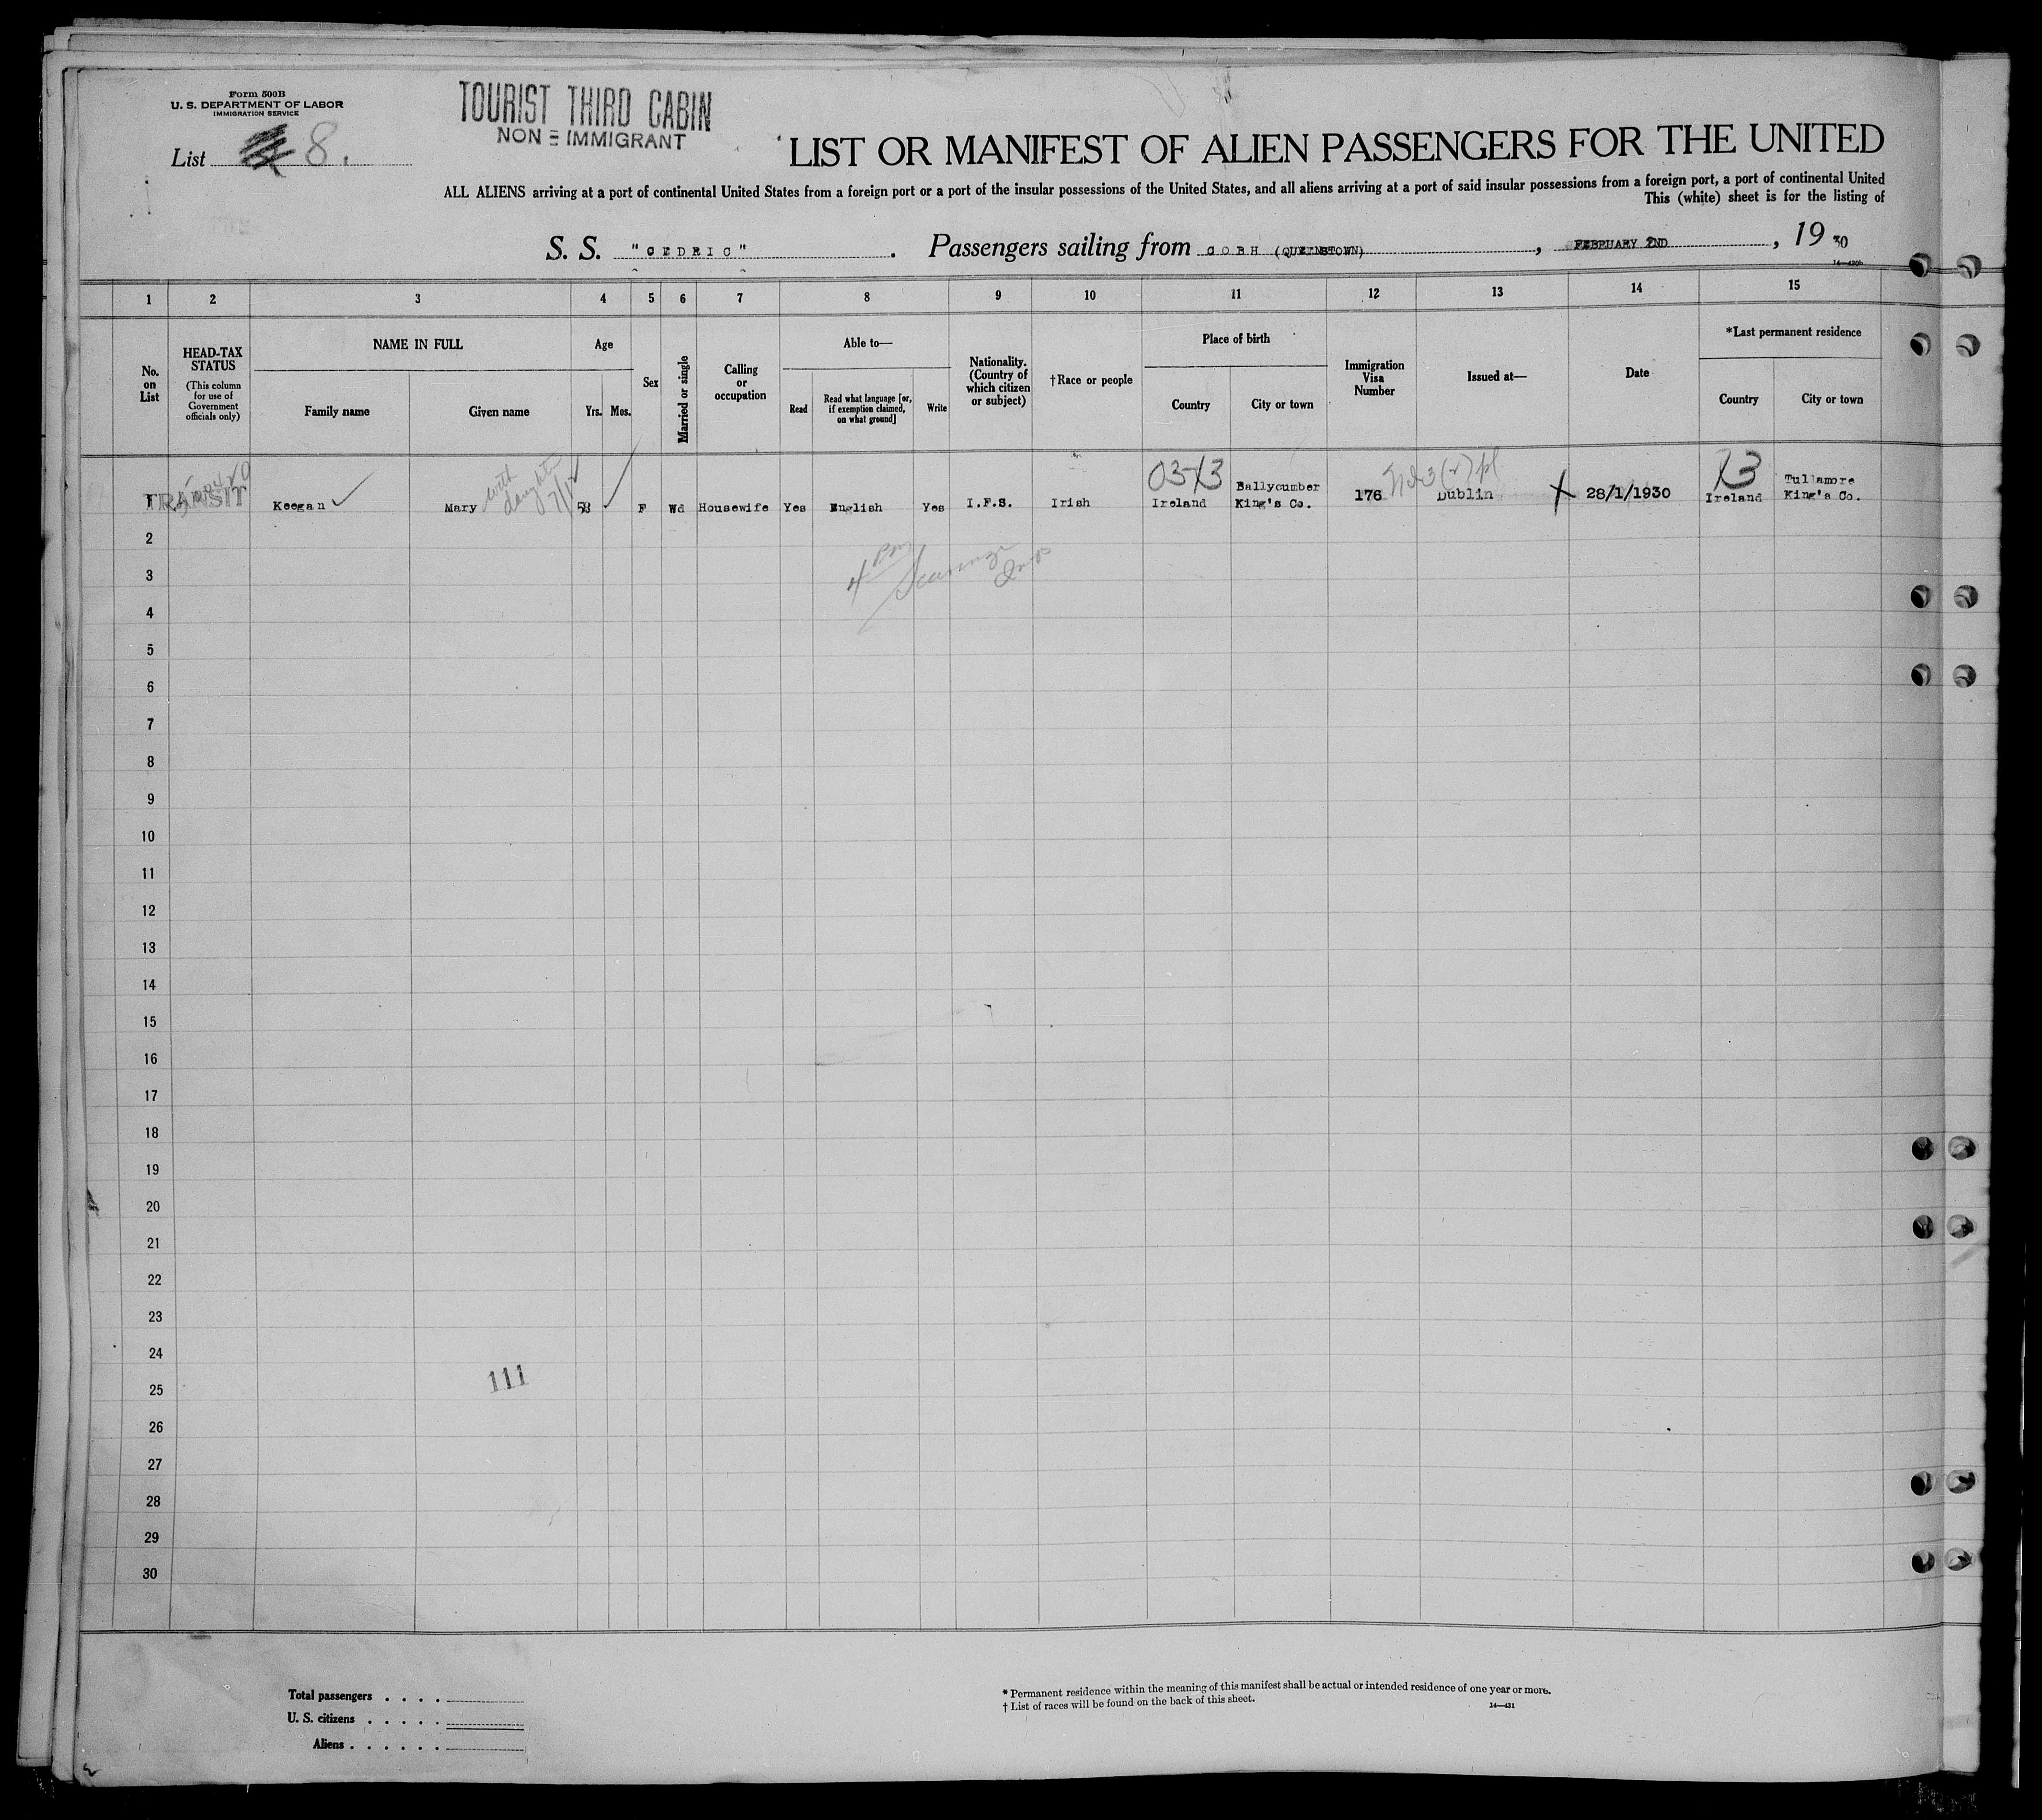 Form 500B
U. S. DEPARTMENT OF LABOR
IMMIGRATION SERVICE
List 8.
TOURIST THIRD CABIN
NON = IMMIGRANT
LIST OR MANIFEST OF ALIEN PASSENGERS FOR THE UNITED
ALL ALIENS arriving at a port of continental United States from a foreign port or a port of the insular possessions of the United States, and all aliens arriving at a port of said insular possessions from a foreign port, a port of continental United
This (white) sheet is for the listing of
S. S. "CEDRIC". Passengers sailing from COBH (QUEENSTOWN), FEBRUARY 2ND, 1930
1 2 3 4 5 6 7 8 9 10 11 12 13 14 15
No. on List
HEAD-TAX STATUS
(This column for use of Government officials only)
NAME IN FULL
Family name
Given name
Age
Yrs. Mos.
Sex
Married or single
Calling or occupation
Able to—
Read
Read what language [or, if exemption claimed, on what ground]
Write
Nationality. (Country of which citizen or subject)
†Race or people
Place of birth
Country
City or town
Immigration Visa Number
Issued at—
Date
*Last permanent residence
Country
City or town
1 TRANSIT Keegan Mary with daughter 58 F Wd Housewife Yes English Yes I.F.S. Irish Ireland Ballycumber King's Co. 176 Dublin 28/1/1930 Ireland Tullamore King's Co.
2
3
4
5
6
7
8
9
10
11
12
13
14
15
16
17
18
19
20
21
22
23
24
111
25
26
27
28
29
30
Total passengers . . . .
U. S. citizens . . . . .
Aliens . . . . . .
* Permanent residence within the meaning of this manifest shall be actual or intended residence of one year or more.
† List of races will be found on the back of this sheet.
14—431